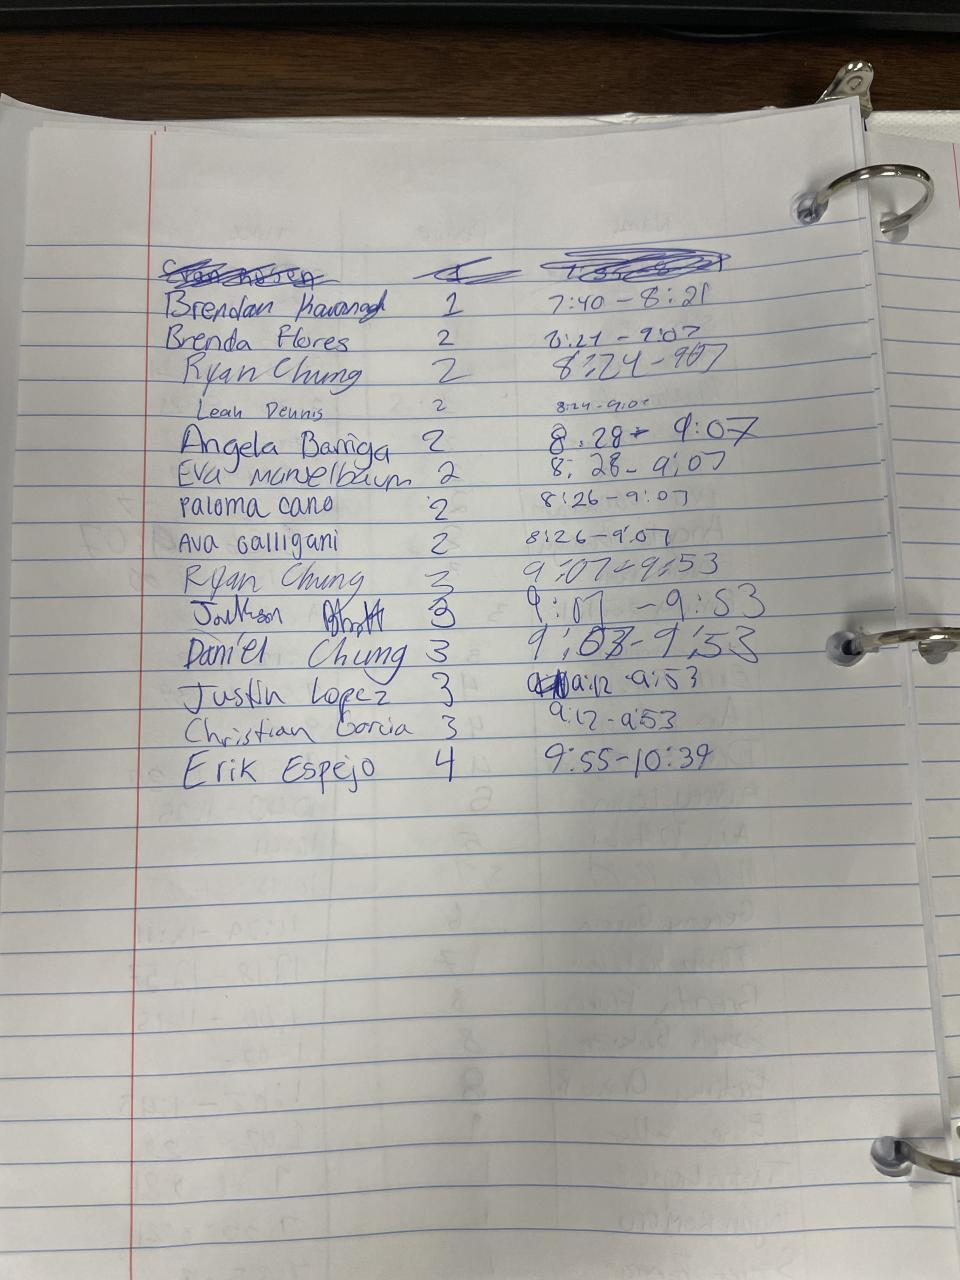 Brendan Kavanagh 1 7:40-8:21
Brenda Flores 2 8:21-9:07
Ryan Chung 2 8:24-907
Leah Dennis 2 8:24-9:07
Angela Barriga 2 8:28-9:07
Eva Mandelbaum 2 8:28-9:07
Paloma cano 2 8:26-9:07
Ava Galligani 2 8:26-9:07
Ryan Chung 3 9:07-9:53
Jackson 3 9:07-9:53
Daniel Chung 3 9:07-9:53
Justin Lopez 3 9:12-9:53
Christian Garcia 3 9:12-9:53
Erik Espejo 4 9:55-10:39